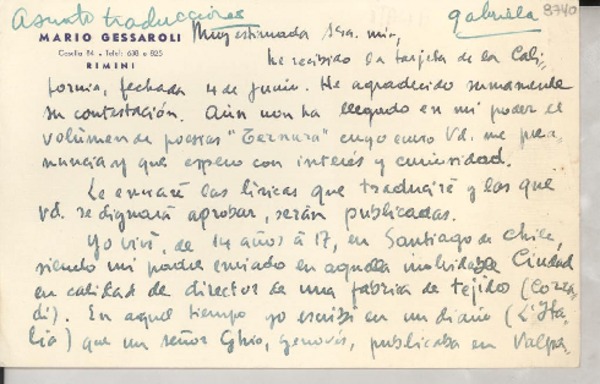 Asunto traducciones
gabriela
8740
MARIO GESSAROLI
Casella 84 - Telef: 638 e 825
RIMINI
Muy estimada Sra. mia,
he recibido la tarjeta de la Cali-
fornia, fechada 4 de junio. He agradecido sumamente
su contestación. Aún non ha llegado en mi poder el
volúmen de poesias "Ternura" cuyo envio Vd. me prea-
nuncia y que espero con interés y curiosidad.
Le enviaré las líricas que traduciré y las que
Vd. se dignará aprobar, serán publicadas.
Yo viví, de 14 años á 17, en Santiago de Chile,
siendo mi padre enviado en aquella inolvidable Ciudad
en calidad de director de una fabrica de tejido (Corra-
di). En aquel tiempo yo escribí en un diario (L'Ita-
lia) que un señor Ghio, genovés, publicaba en Valpa-